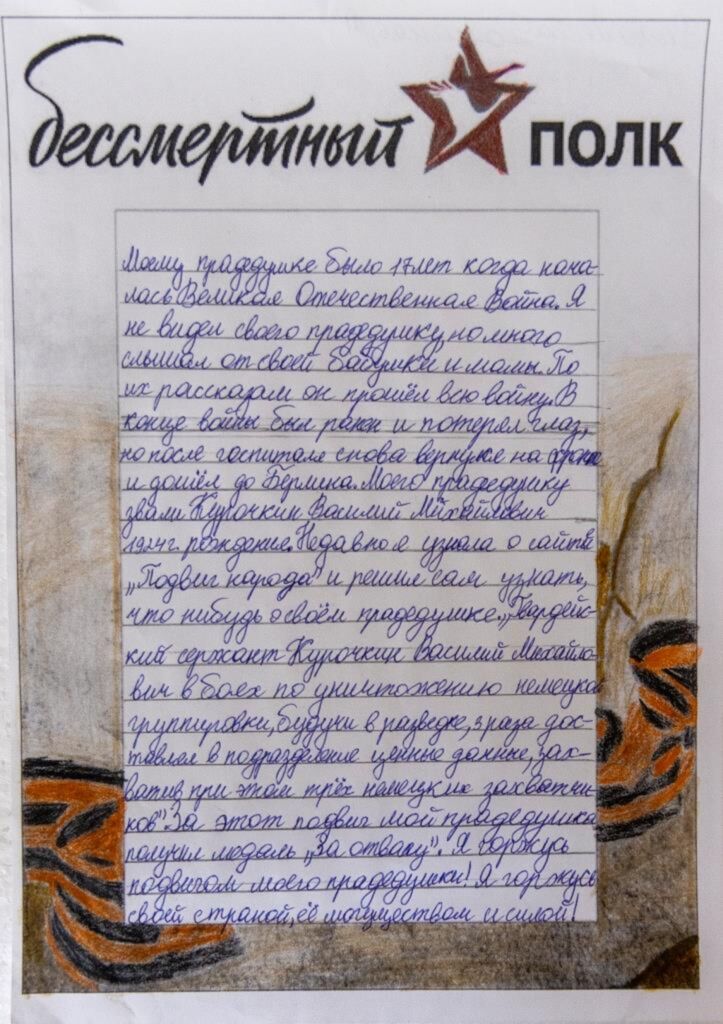 бессмертный ПОЛК
Моему прадедушке было 17 лет когда нача-
лась Великая Отечественная Война. Я
не видел своего прадедушку, но много
слышал от своей бабушки и мамы. По
их рассказам он прошёл всю войну. В
конце войны был ранен и потерял глаз,
но после госпиталя снова вернулся на фронт
и дошёл до Берлина. Моего прадедушку
звали Курочкин Василий Михайлович
1924 г. рождение. Недавно я узнала о сайте
„Подвиг народа" и решил сам узнать,
что нибудь о своём прадедушке. „Гвардейс-
кий сержант Курочкин Василий Михайло-
вич в боях по уничтожению немецкой
группировки, будучи в разведке, 3 раза дос-
тавлял в подразделение ценные данные, зах-
ватив при этом трёх немецких захватчи-
ков". За этот подвиг мой прадедушка
получил медаль „За отвагу". Я горжусь
подвигом моего прадедушки! Я горжусь
своей страной, её могуществом и силой!